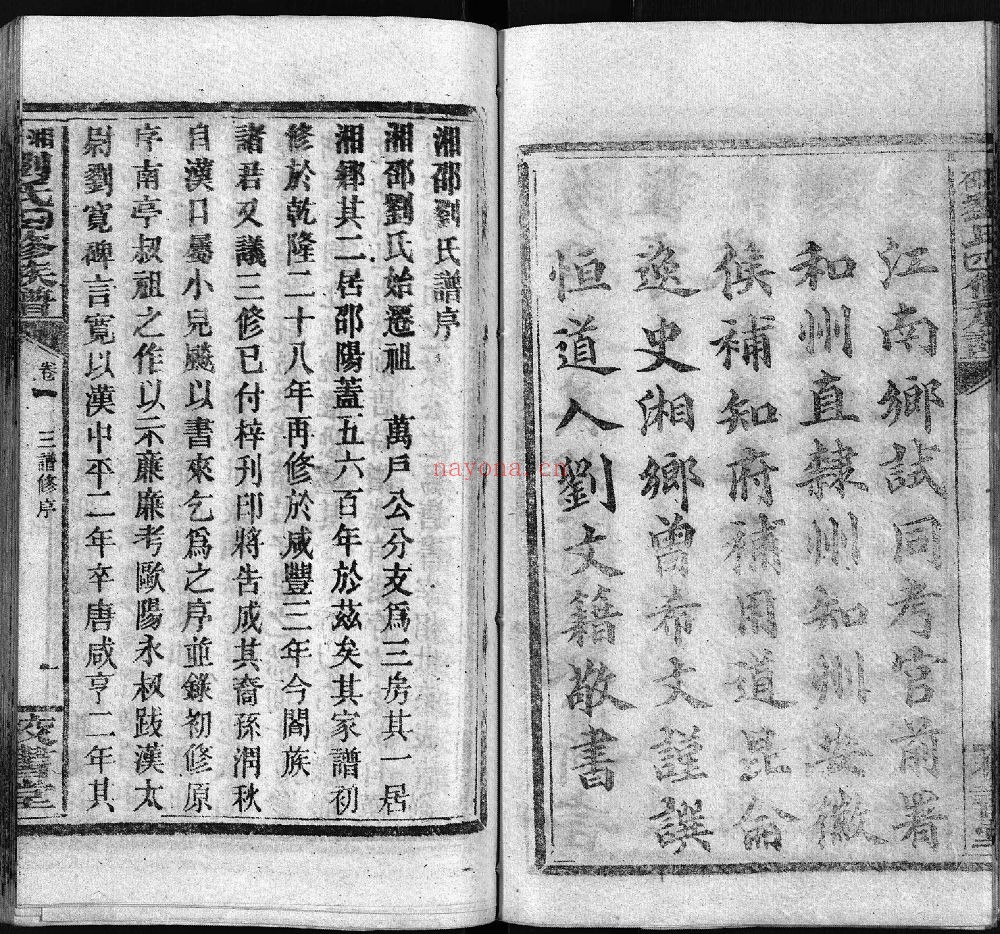 江南鄉試同考官前署
和州直隸州知州安徽
候補知府補用道崑侖
逸史湘鄉曾希文謹譔
恒道人劉文籍敬書
湘邵劉氏譜序
湘邵劉氏始遷祖 萬戶公分支爲三房其一居
湘鄉其二居邵陽蓋五六百年於茲矣其家譜初
修於乾隆二十八年再修於咸豐三年今闔族
諸君又議三修已付梓刊印將告成其裔孫潤秋
自漢口屬小兒颺以書來乞爲之序並錄初修原
序南亭叔祖之作以示蘪蘪考歐陽永叔跋漢太
尉劉寬碑言寬以漢中平二年卒唐咸亨二年其
湘劉氏四修族譜 卷一 三譜修序 一
nayona.cn